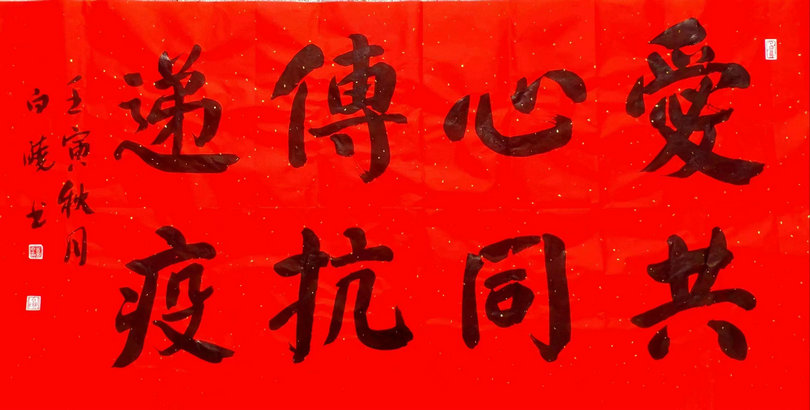 愛心傳递
共同抗疫
壬寅秋月
白曉书